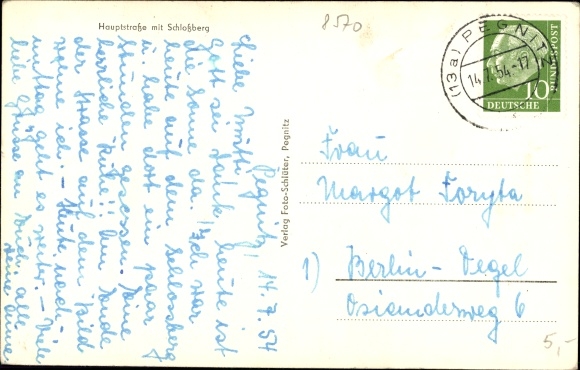 Hauptstraße mit Schloßberg
8570
Pegnitz, 14.7.54
Liebe Mutti!
Gott sei Dank, heute ist
die Sonne da. Ich war
heute auf dem Schlossberg
u. habe dort ein paar
Stunden gesessen. Eine
herrliche Ruhe!! Am Ende
der Strasse auf dem Bild
wohne ich. - Heute nach-
mittag geht es weiter. - Viele
liebe Grüsse an Euch alle
Deine
Verlag Foto-Schlüter, Pegnitz
(13a) PEGNITZ
14.7.54-17
10
DEUTSCHE
BUNDESPOST
Frau
Margot Foryta
1) Berlin - Tegel
Osianderweg 6
5,-